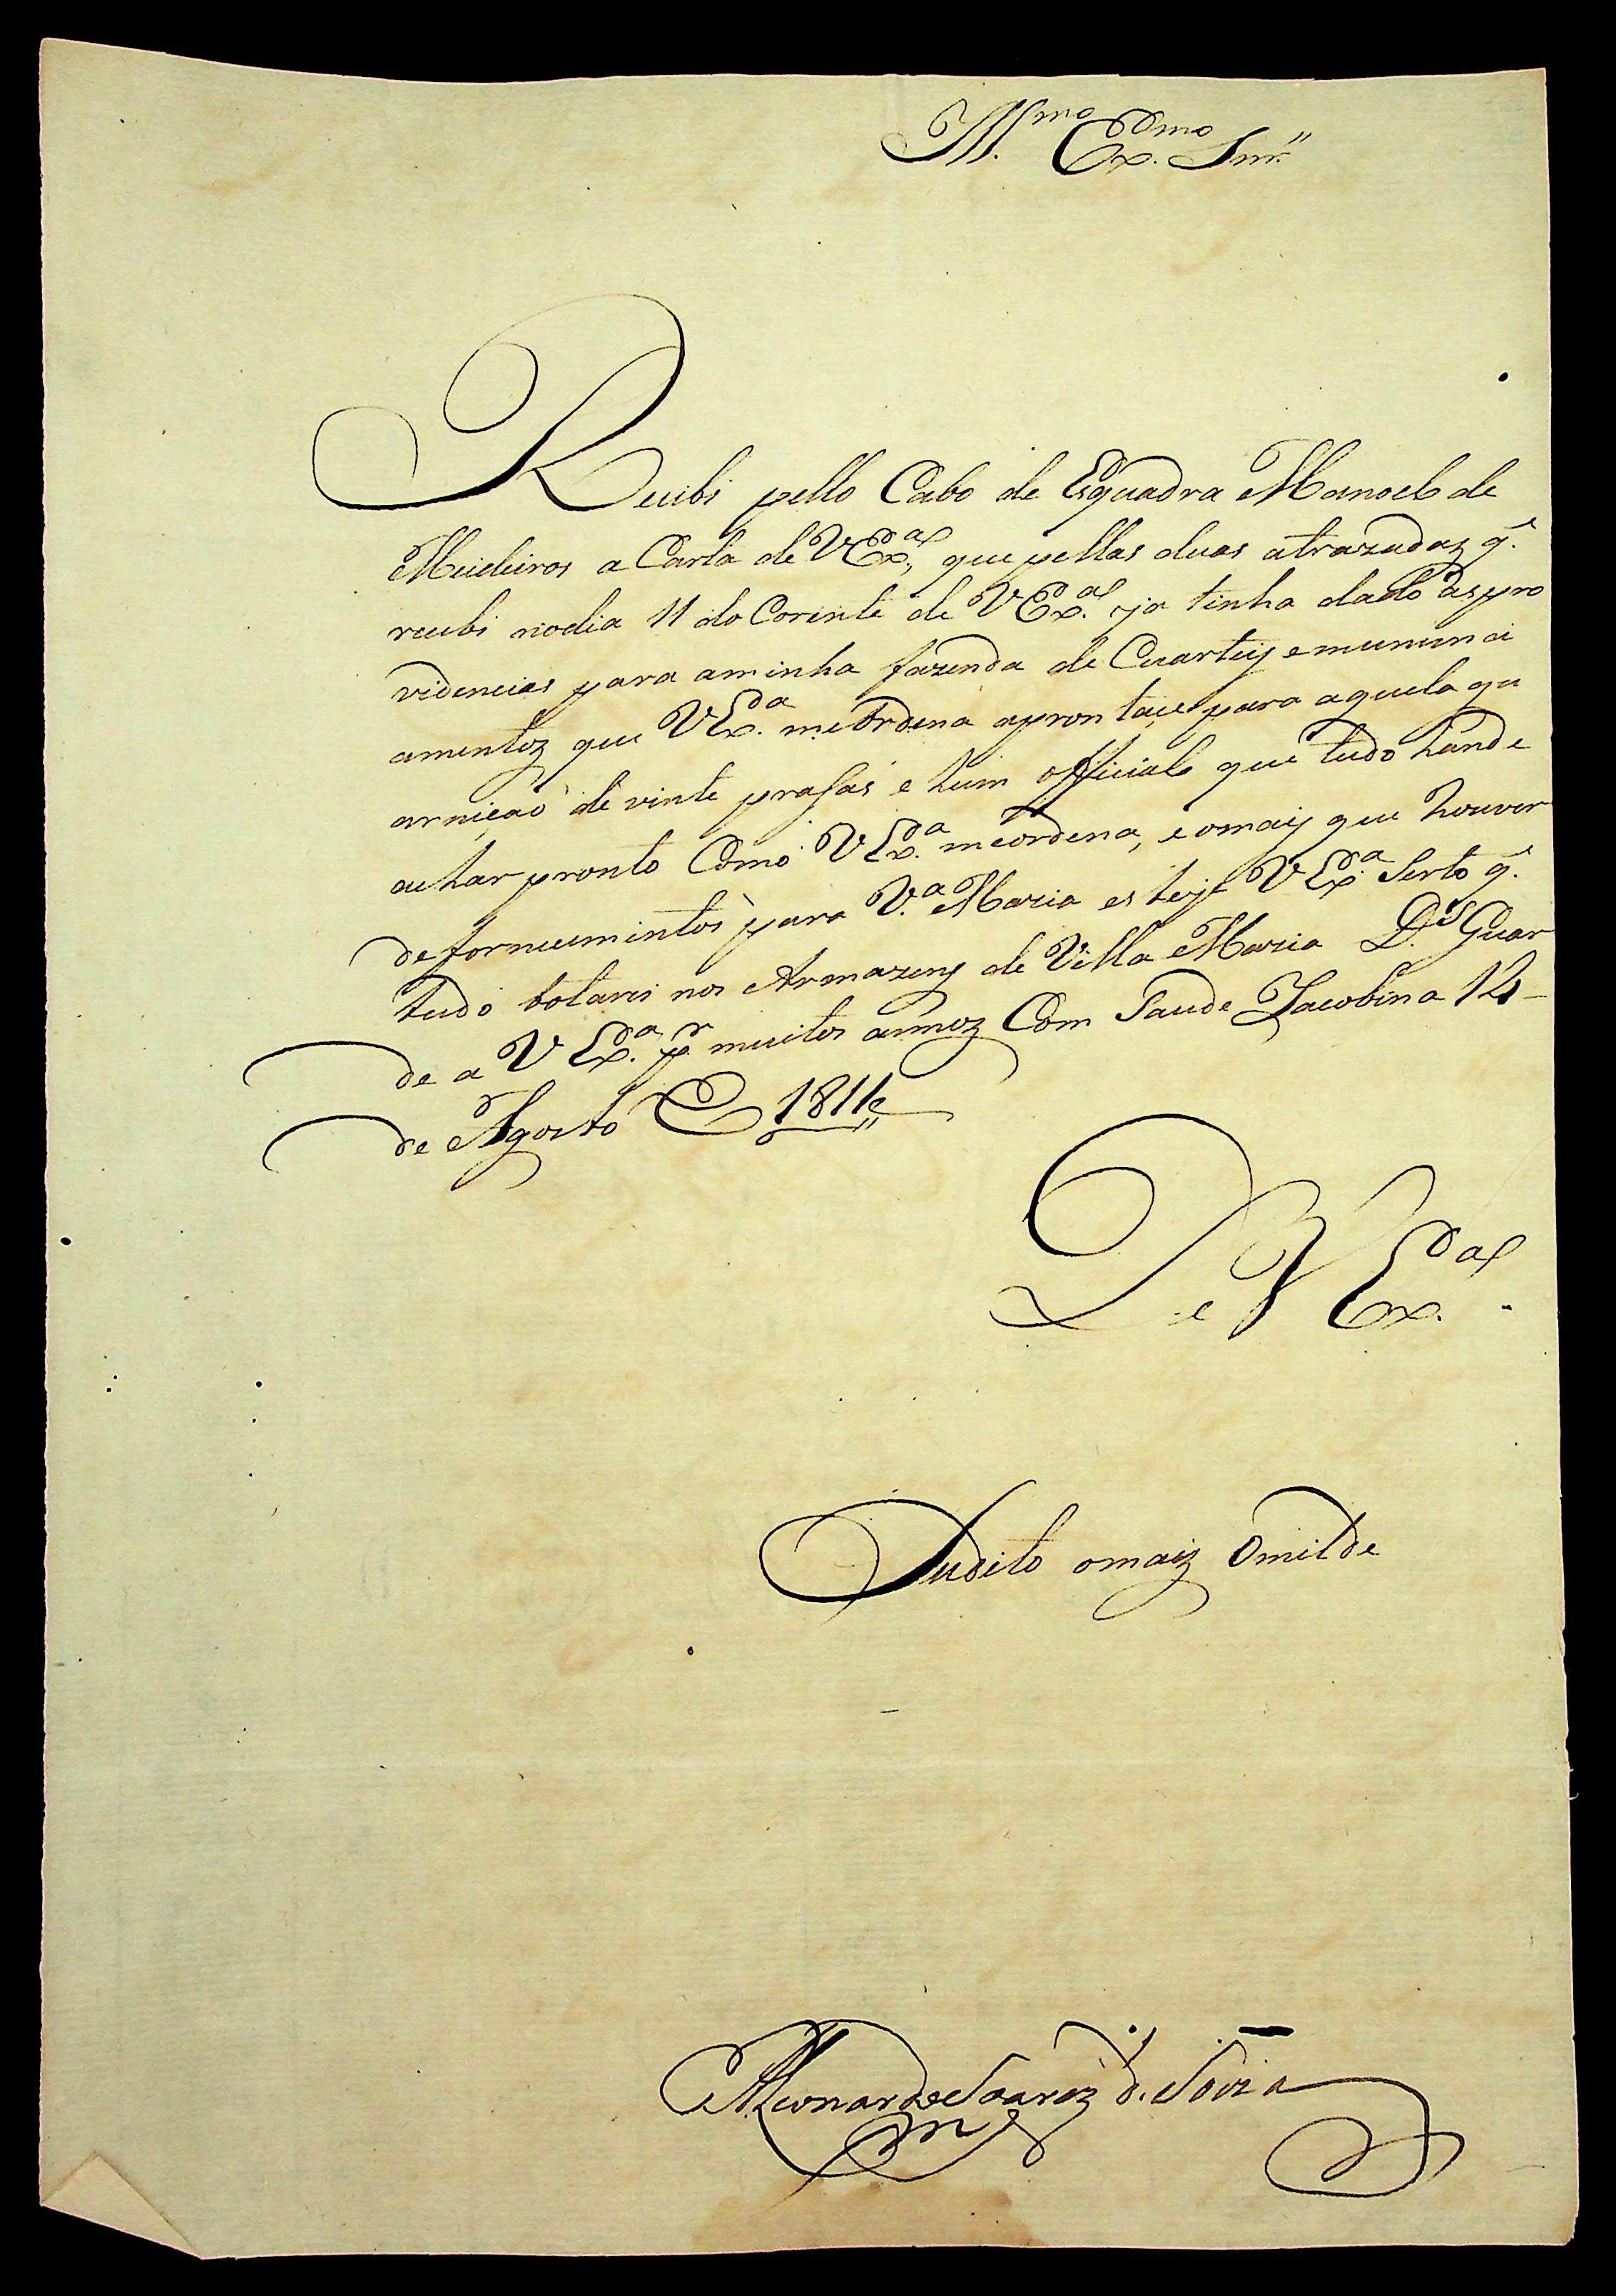 Ill.mo Ex.mo Snr.
Recibi pello Cabo de Esquadra Manoel de
Meideiros a Carta de VEx.ª, que pellas duas atrazadaz q.
recibi nodia 11 do Corente de VEx.ª ja tinha dado as pro
videncias para aminha fazenda de Cuarteis e
amentoz que VEx.ª me Ordena aprontace para aquela gu
arniçaõ de vinte prasas e hum official que tudo hande
achar pronto Como VEx.ª meordena, e omaiz que houver
de fornecimentos para V.ª Maria esteje VEx.ª Serto q.
tudo botarei nos Armazens de Villa Maria D.s Guar
de a VEx.ª p.r muitos annoz Com Saude Jacobina 12
de Agosto 1811
De VEx.ª
Sudito omaiz Omilde
Leonardo Soarez d. Soiza